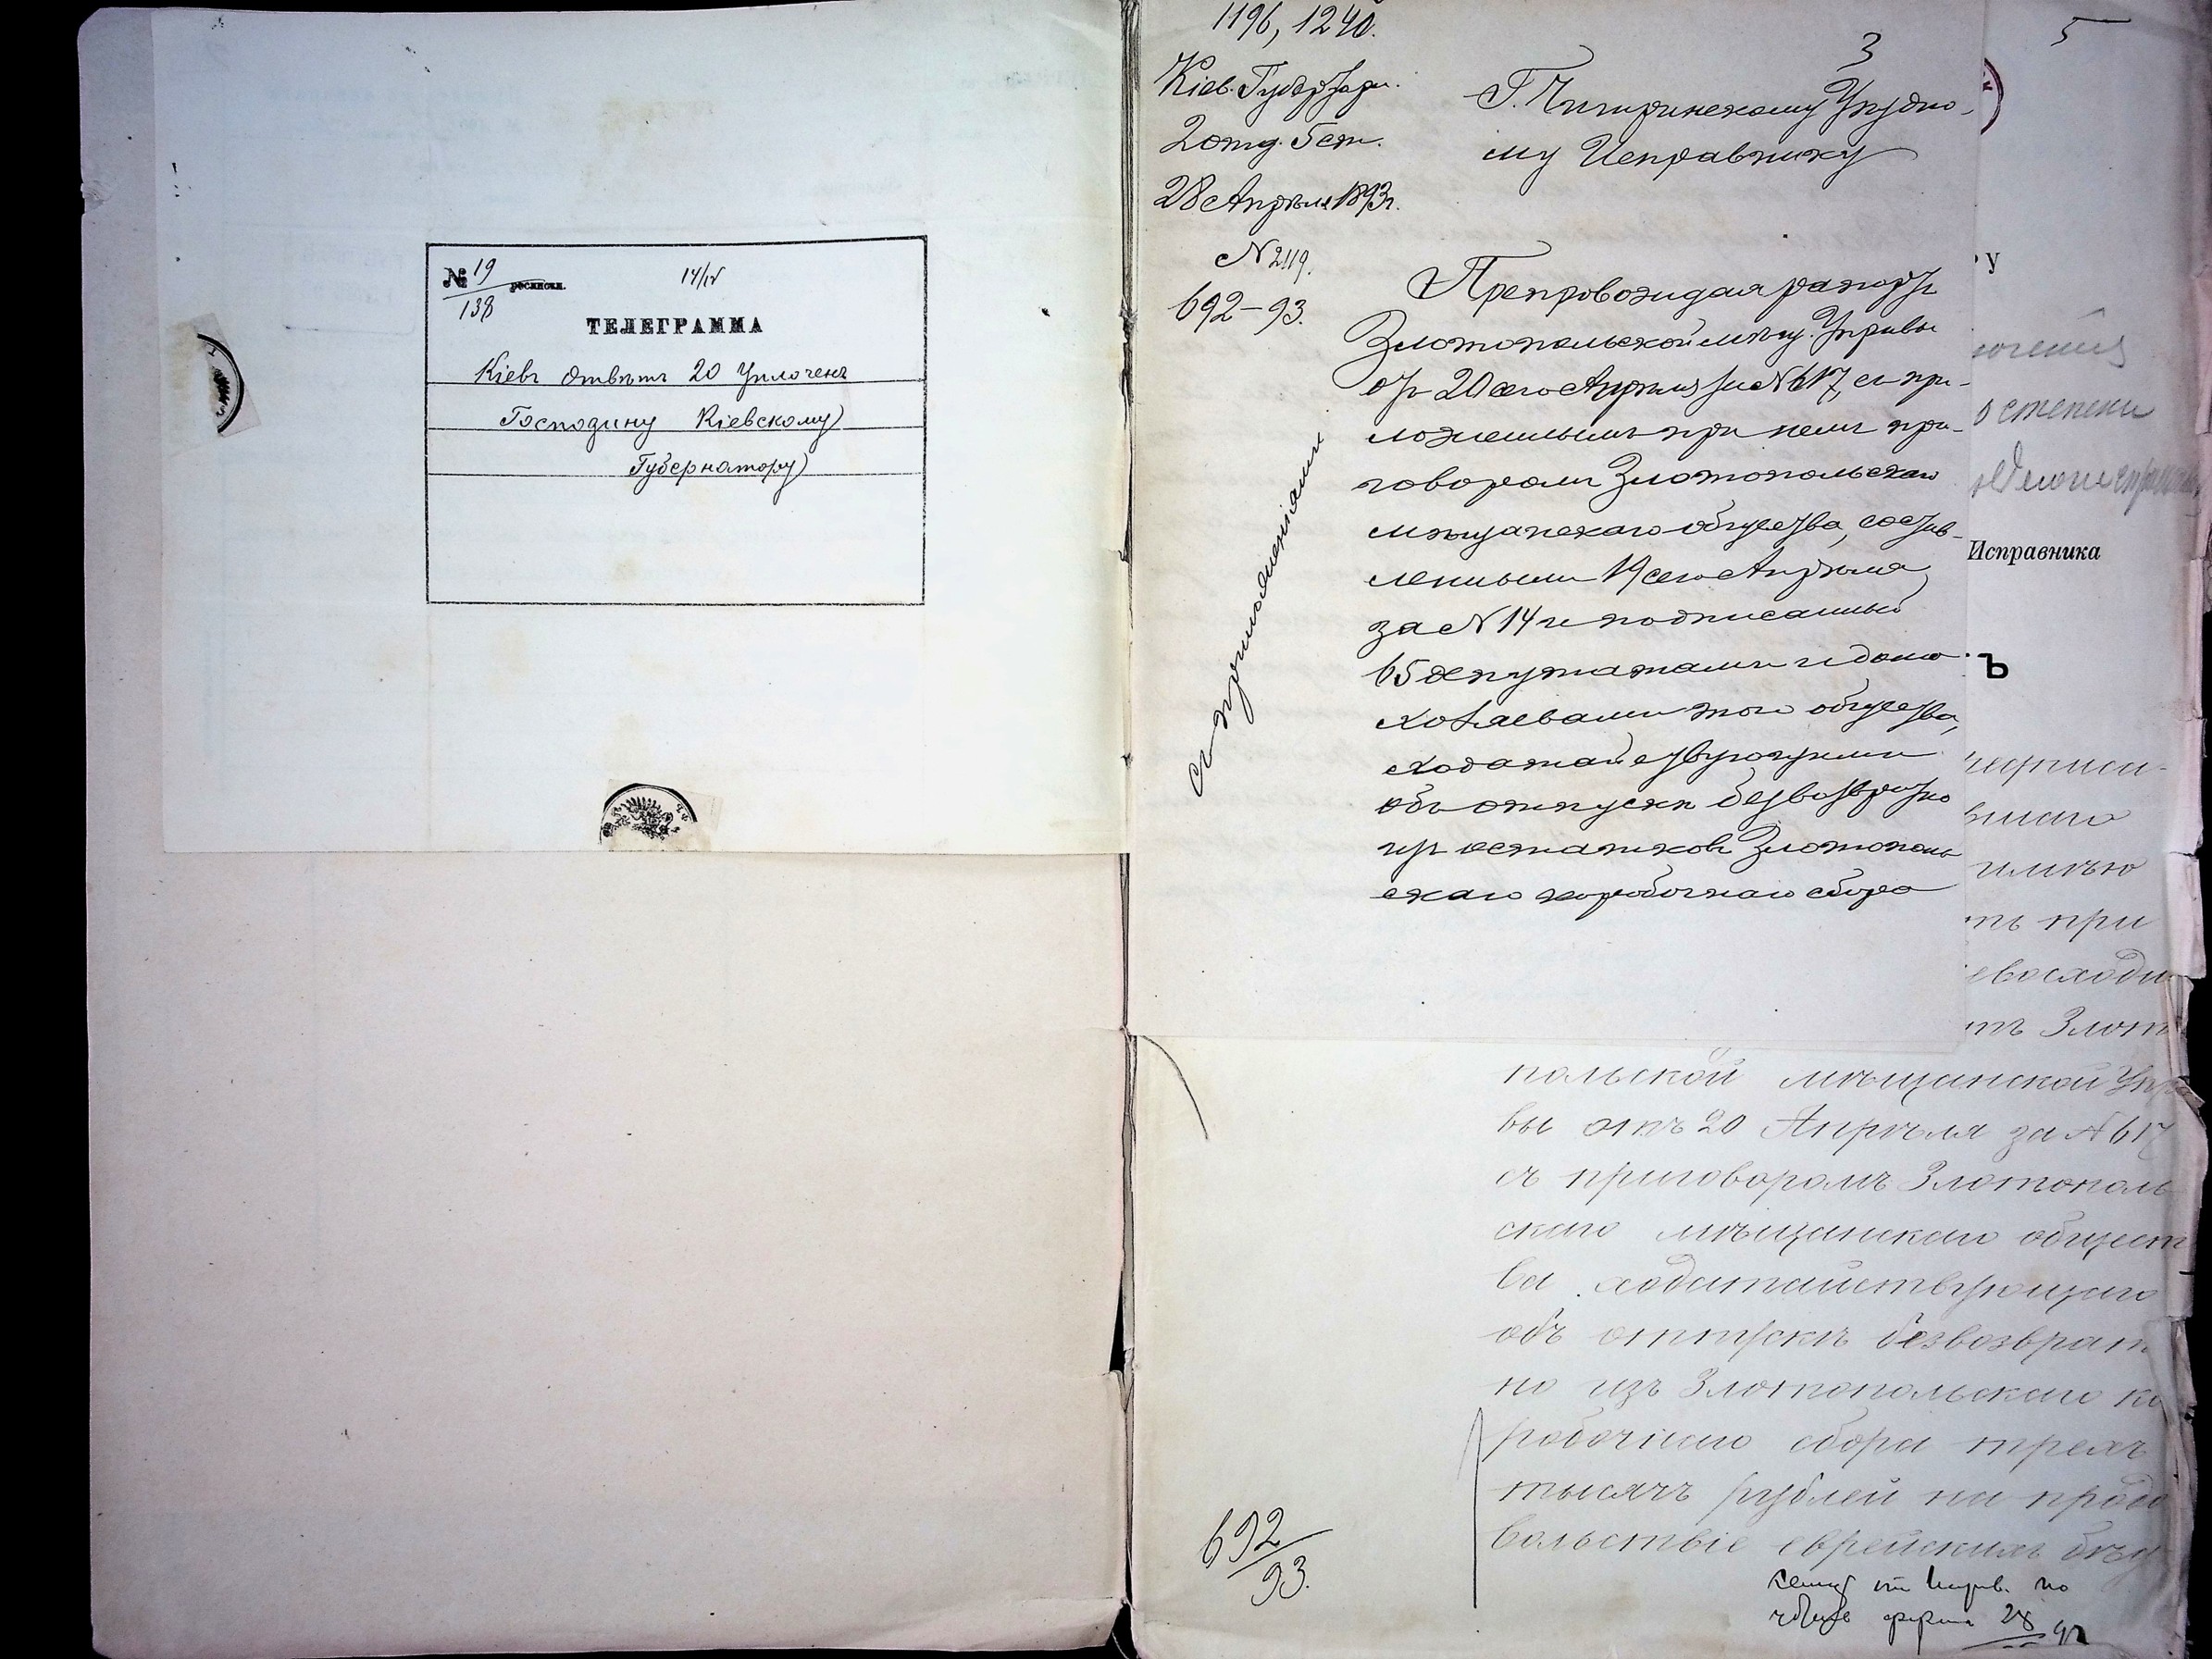 № 19 росписки. 14/IV
138
ТЕЛЕГРАММА
Кіевъ Отвѣтъ 20 Уплоченъ
Господину Кіевскому
Губернатору
1196, 1240.
Кіев.
2 отд. 5 ст.
28 Апрѣля 1893 г.
№ 2119.
692-93.
Съ приложеніями
3
Г. Чигиринскому Уѣздно-
му Исправнику
Препровождая рапортъ
Златопольской мѣщ. Управы
отъ 20 сего Апрѣля за № 617, съ при-
ложеннымъ при немъ при-
говоромъ Златопольскаго
мѣщанскаго общества, состав-
леннымъ 19 сего Апрѣля
за № 14 и подписаннымъ
65 депутатами и домо-
хозяевами того общества,
ходатайствующими
объ отпускѣ безвозвратно
изъ остатковъ Златополь
скаго коробочнаго сбора
5
у
о степени
Исправника
ъ
имѣю
ть при
евосходи
тъ Злот
польской мѣщанской Упра
вы отъ 20 Апрѣля за № 617
съ приговоромъ Злотополь
скаго мѣщанскаго общест
ва ходатайствующаго
объ отпускѣ безвозврат
но изъ Злотопольскаго ко
робочнаго сбора трехъ
тысячъ рублей на продо
вольствіе еврейскихъ бѣд
692
93.
по
28